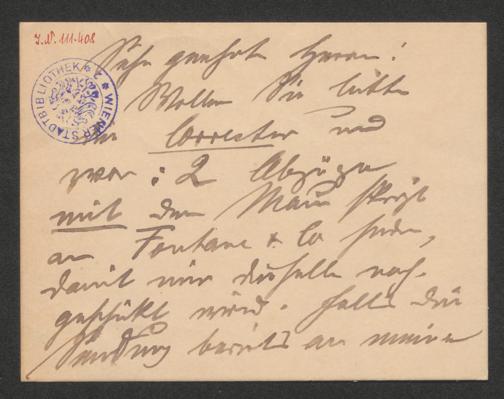 I.N. 111.408
WIENER STADTBIBLIOTHEK
Sehr geehrte Herren!
Wollen Sie bitte
die Correctur und
zwar: 2 Abzüge
mit dem Manuskript
an Fontane & Co senden,
damit mir dieselbe nach-
geschickt wird. Falls die
Sendung bereits an meine